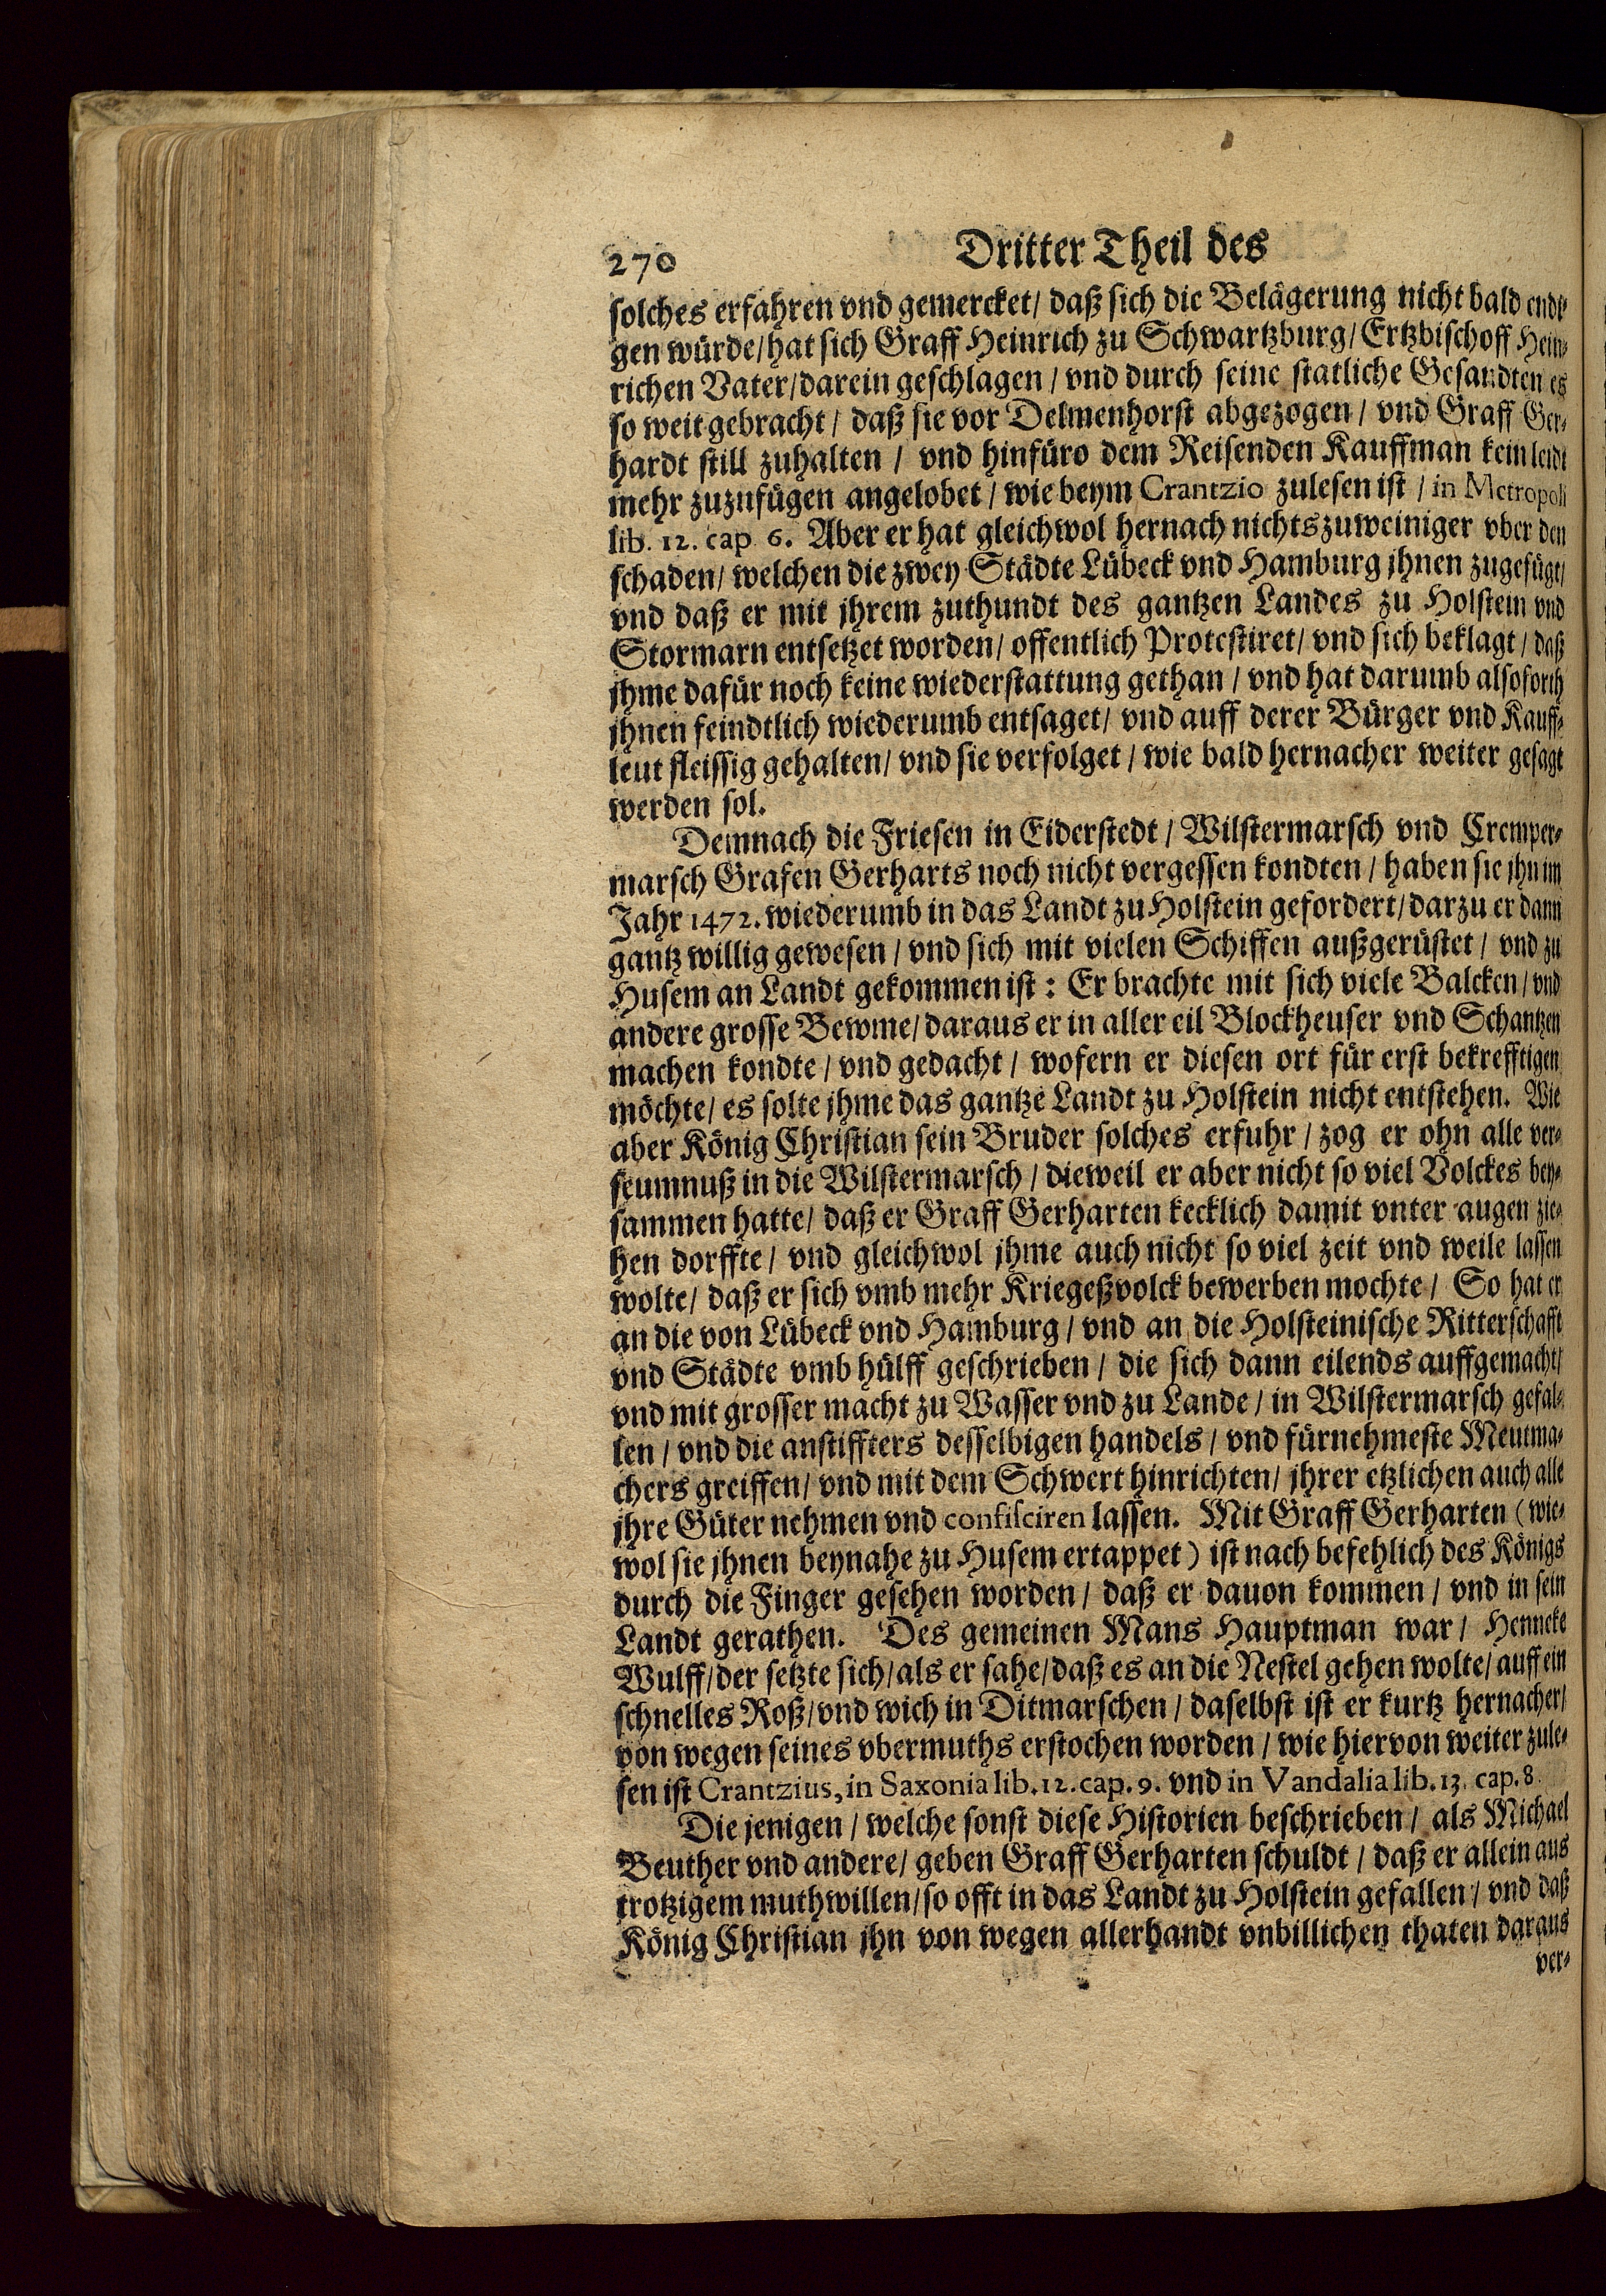 270 Dritter Theil des
solches erfahren vnd gemercket / daß sich die Belägerung nicht bald endi-
gen würde / hat sich Graff Heinrich zu Schwartzburg / Ertzbischoff Hein-
richen Vater / darein geschlagen / vnd durch seine statliche Gesandten es
so weit gebracht / daß sie vor Delmenhorst abgezogen / vnd Graff Ger-
hardt still zuhalten / vnd hinfüro dem Reisenden Kauffman kein leidt
mehr zuzufügen angelobet / wie beym Crantzio zulesen ist / in Metropoli
lib. 12. cap 6. Aber er hat gleichwol hernach nichts zuweiniger vber den
schaden / welchen die zwey Städte Lübeck vnd Hamburg jhnen zugefügt /
vnd daß er mit jhrem zuthundt des gantzen Landes zu Holstein vnd
Stormarn entsetzet worden / offentlich Protestiret / vnd sich beklagt / daß
jhme dafür noch keine wiederstattung gethan / vnd hat darumb alsoforth
jhnen feindtlich wiederumb entsaget / vnd auff derer Bürger vnd Kauff-
leut fleissig gehalten / vnd sie verfolget / wie bald hernacher weiter gesagt
werden sol.
Demnach die Friesen in Eiderstedt / Wilstermarsch vnd Cremper-
marsch Grafen Gerharts noch nicht vergessen kondten / haben sie jhn im
Jahr 1472. wiederumb in das Landt zu Holstein gefordert / darzu er dann
gantz willig gewesen / vnd sich mit vielen Schiffen außgerüstet / vnd zu
Husem an Landt gekommen ist: Er brachte mit sich viele Balcken / vnd
andere grosse Bewme / daraus er in aller eil Blockheuser vnd Schantzen
machen kondte / vnd gedacht / wofern er diesen ort für erst bekrefftigen
möchte / es solte jhme das gantze Landt zu Holstein nicht entstehen. Wie
aber König Christian sein Bruder solches erfuhr / zog er ohn alle ver-
seumnuß in die Wilstermarsch / dieweil er aber nicht so viel Volckes bey-
sammen hatte / daß er Graff Gerharten kecklich damit vnter augen zie-
hen dorffte / vnd gleichwol jhme auch nicht so viel zeit vnd weile lassen
wolte / daß er sich vmb mehr Kriegeßvolck bewerben mochte / So hat er
an die von Lübeck vnd Hamburg / vnd an die Holsteinische Ritterschafft
vnd Städte vmb hülff geschrieben / die sich dann eilends auffgemacht /
vnd mit grosser macht zu Wasser vnd zu Lande / in Wilstermarsch gefal-
len / vnd die anstiffters desselbigen handels / vnd fürnehmeste Meutma-
chers greiffen / vnd mit dem Schwert hinrichten / jhrer etzlichen auch alle
jhre Güter nehmen vnd confisciren lassen. Mit Graff Gerharten (wie-
wol sie jhnen beynahe zu Husem ertappet) ist nach befehlich des Königs
durch die Finger gesehen worden / daß er dauon kommen / vnd in sein
Landt gerathen. Des gemeinen Mans Hauptman war / Henneke
Wulff / der setzte sich / als er sahe / daß es an die Nestel gehen wolte / auff ein
schnelles Roß / vnd wich in Ditmarschen / daselbst ist er kurtz hernacher /
von wegen seines vbermuths erstochen worden / wie hiervon weiter zule-
sen ist Crantzius, in Saxonia lib. 12. cap. 9. vnd in Vandalia lib. 13. cap. 8.
Die jenigen / welche sonst diese Historien beschrieben / als Michael
Beuther vnd andere / geben Graff Gerharten schuldt / daß er allein aus
trotzigem muthwillen / so offt in das Landt zu Holstein gefallen / vnd daß
König Christian jhn von wegen allerhandt vnbillichen thaten daraus
ver-